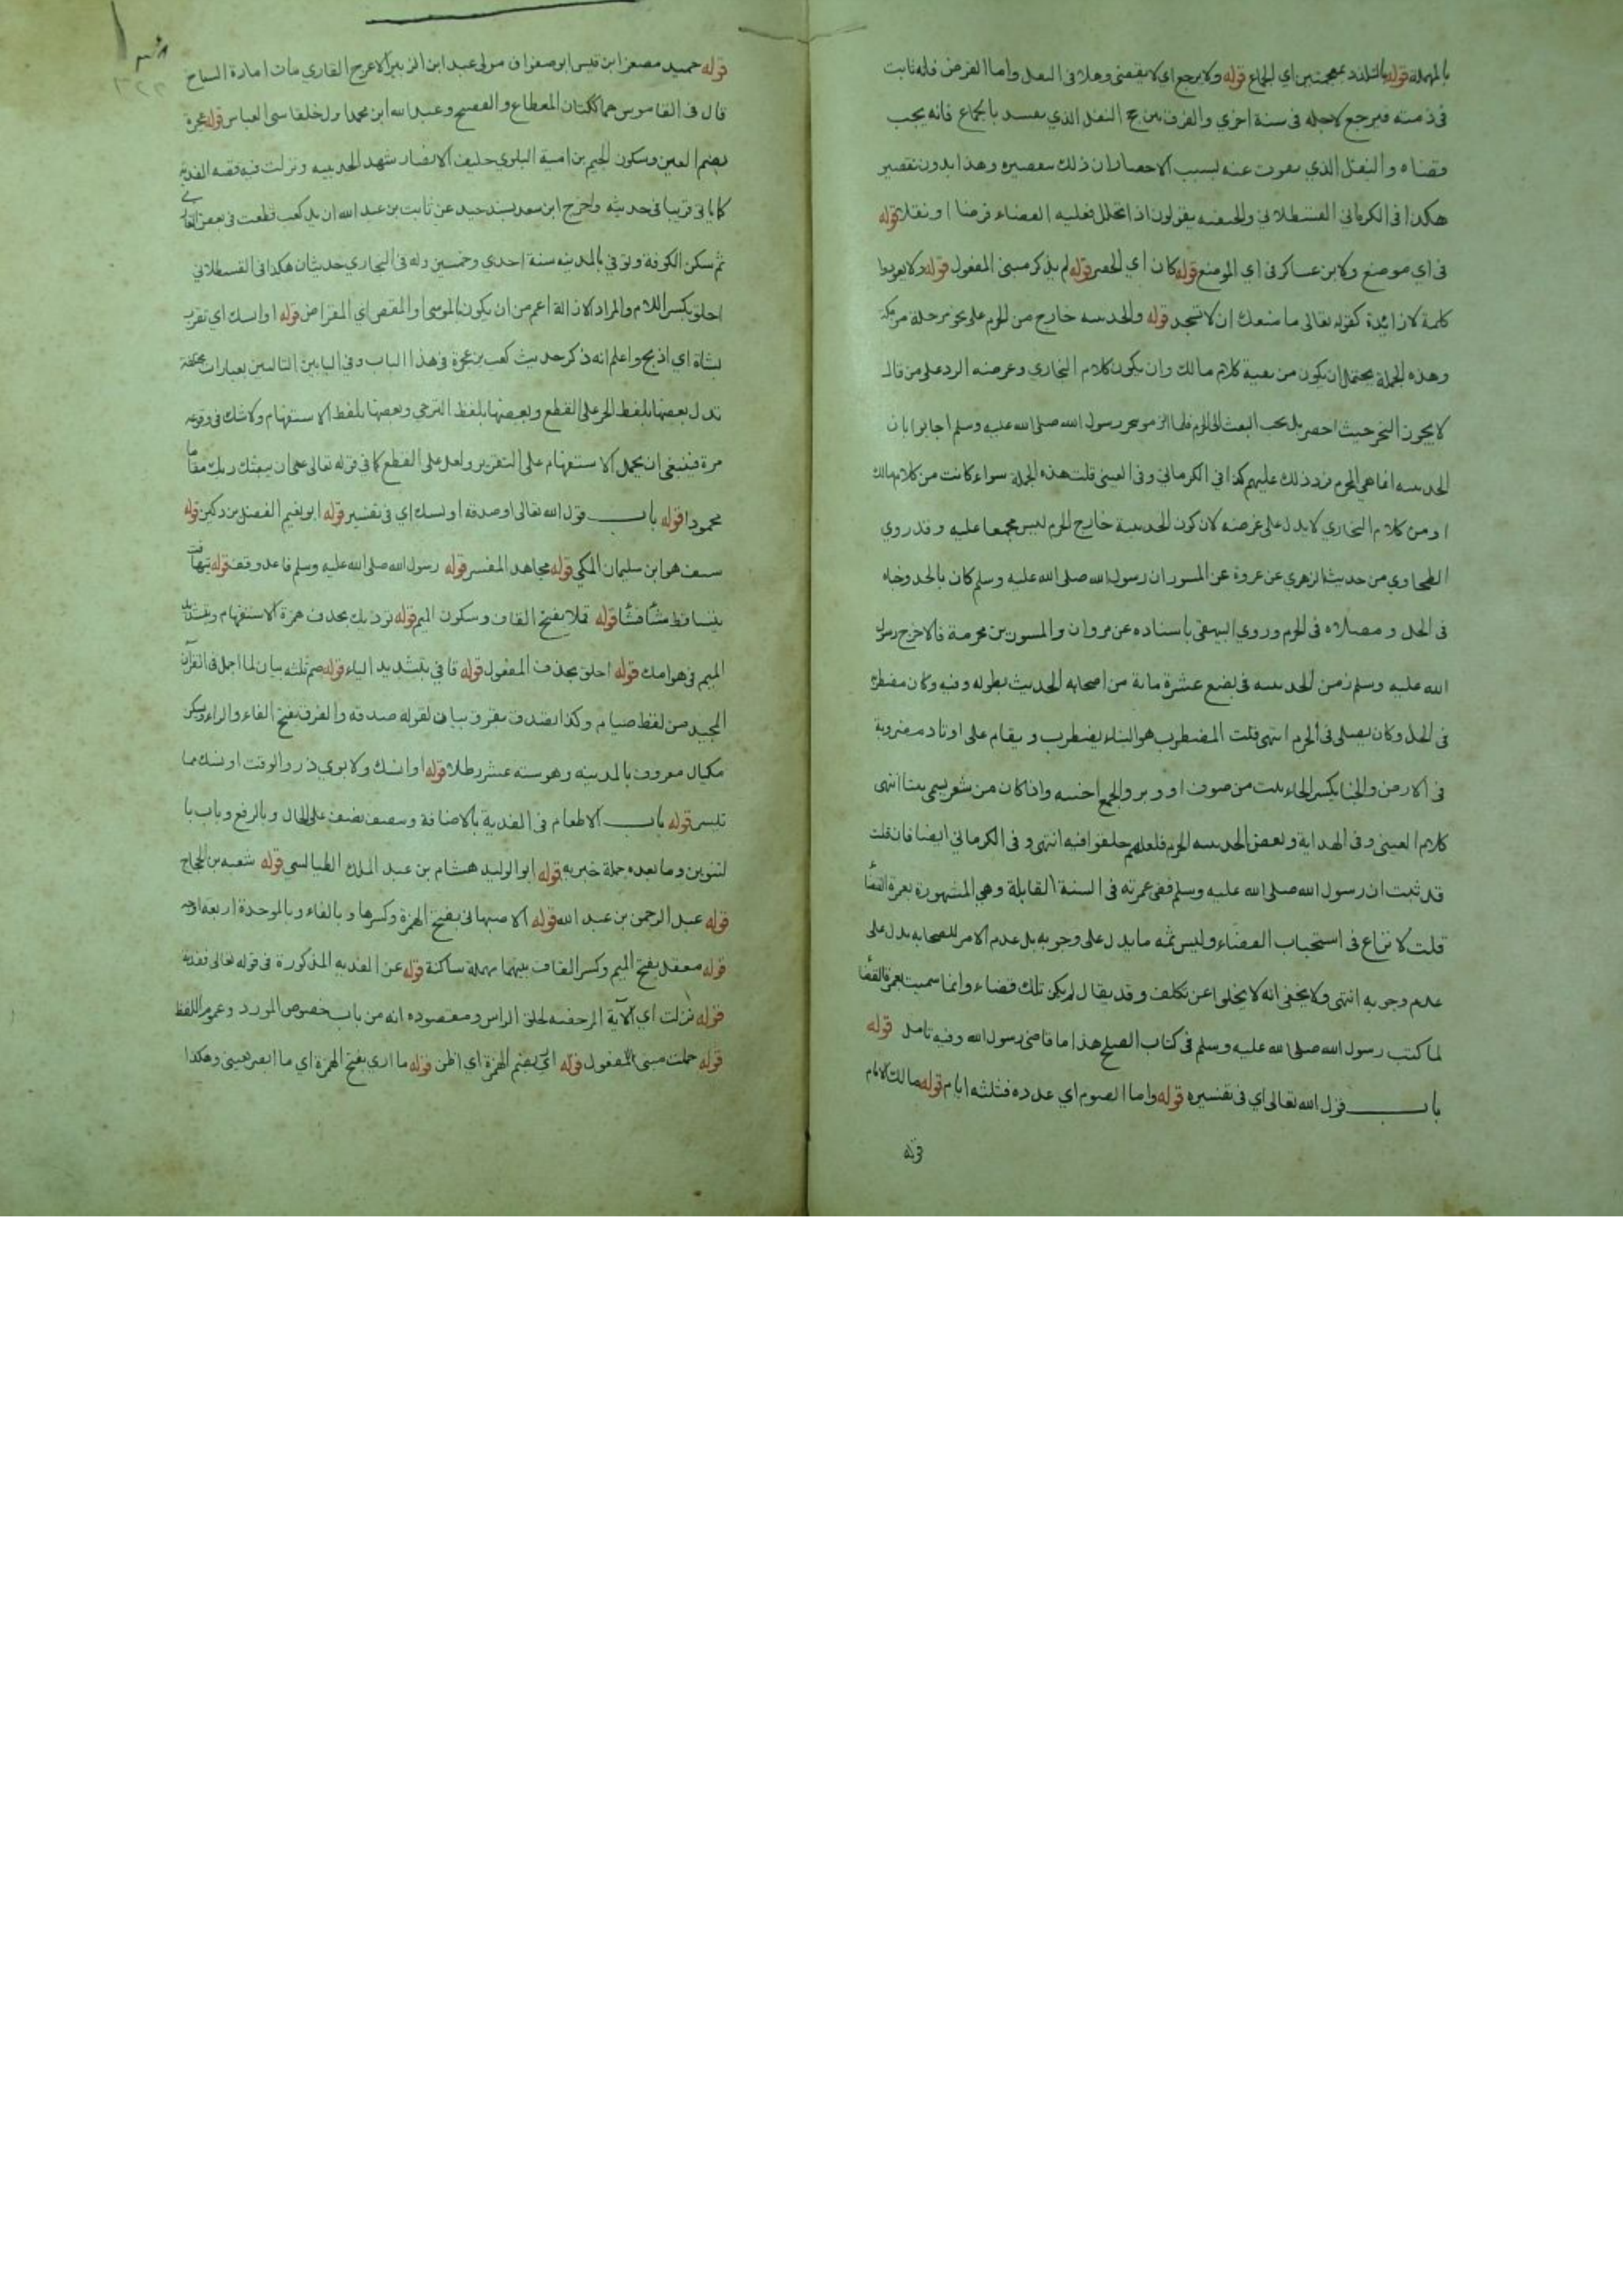 بالمهملة قوله بالتلذذ بمعجمتين اي الجماع قوله ولا يرجع اي لا يقضي وهذا في النفل واما الفرض فانه ثابت
في ذمته فيرجع لاجله في سنة اخري والفرق بين حج النفل الذي يفسد بالجماع فانه يجب
قضاه والنفل الذي يفوت عنه بسبب الاحصار ان ذلك بتقصيره وهذا بدون تقصير
هكذا في الكرماني القسطلاني والحنفيه يقولون اذا تحلل فعليه القضاء فرضا او نفلا قوله
في اي موضع ولابن عساكر في اي المواضع قوله كان اي الحصر قوله لم يذكر مبني المفعول قوله ولا يعودوا
كلمة لا زائدة كقوله تعالى ما منعك ان لا تسجد قوله والحديبيه خارج من الحرم على نحو مرحلة من مكة
وهذه الجملة يحتمل ان يكون من بقية كلام مالك وان يكون كلام البخاري وغرضه الرد على من قال
لا يجوز النحر حيث احصر بل يجب البعث الى الحرم فلما الزموا بنحر رسول الله صلى الله عليه وسلم اجابوا بان
الحديبيه انما هي الحرم فرد ذلك عليهم كذا في الكرماني وفي العيني قلت هذه الجملة سواء كانت من كلام مالك
او من كلام البخاري لا يدل على غرضه لان كون الحديبية خارج الحرم ليس مجمعا عليه وقد روي
الطحاوي من حديث الزهري عن عروة عن المسور ان رسول الله صلى الله عليه وسلم كان بالحديبية خباه
في الحل ومصلاه في الحرم وروي البيهقي باسناده عن مروان والمسور بن مخرمة قالا خرج رسول
الله عليه وسلم زمن الحديبيه في بضع عشرة ماية من اصحابه الحديث بطوله وفيه وكان مضطربه
في الحل وكان يصلي في الحرم انتهى قلت المضطرب هو البناء يضطرب ويقام على اوتاد مضروبة
في الارض والخبا بكسر الخاء بيت من صوف او وبر والجمع اخبيه واذا كان من شعر يسمى بيتا انتهى
كلام العيني وفي الهداية وبعض الحديبيه الحرم فلعلهم حلقوا فيه انتهى وفي الكرماني ايضا فان قلت
قد ثبت ان رسول الله صلى الله عليه وسلم قضى عمرته في السنة القابلة وهي المشهورة بعمرة القضاء
قلت لا نزاع في استحباب القضاء وليس ثمه ما يدل على وجوبه بل عدم الامر للصحابه يدل على
عدم وجوبه انتهى ولا يخفى انه لا يخلوا عن تكلف وقد يقال لم يكن تلك قضاء وانما سميت بعمرة القضاء
لما كتب رسول الله صلى الله عليه وسلم في كتاب الصلح هذا ما قاضى رسول الله وفيه تامل قوله
باب قول الله تعالى اي في تفسيره قوله واما الصوم اي عدده فثلثه ايام قوله مالك الامام
قوله
قوله حميد مصغرا ابن قيس ابو صفوان مولى عبد ابن الزبير الاعرج القاري مات امارة السفاح
قال في القاموس هما ككتان المعطاء والفصيح وعبد الله ابن محمد اول خلفا بني العباس قوله عجرة
بضم العين وسكون الجيم بن امية البلوي حليف الانصار شهد الحديبيه ونزلت فيه قصه الفدية
كما ياتي قريبا في حديثه واخرج ابن سعد بسند جيد عن ثابت بن عبد الله ان يد كعب قطعت في بعض المغازي
ثم سكن الكوفة وتوفي بالمدينه سنة احدي وخمسين وله في البخاري حديثان هكذا في القسطلاني
احلق بكسر اللام والمراد الازالة اعم من ان يكون بالموسى او المقص اي المقراض قوله او انسك اي تقرب
بشاة اي اذبح واعلم انه ذكر حديث كعب بن عجرة في هذا الباب وفي البابين التاليين بعبارات مختلفه
تدل بعضها بلفظ الجزم على القطع وبعضها بلفظ الترجي وبعضها بلفظ الاستفهام ولا شك في وقوعه
مرة فينبغي ان يحمل الاستفهام على التقرير ولعل على القطع كما في قوله تعالى عسى ان يبعثك ربك مقاما
محمودا قوله باب قول الله تعالى او صدقة او نسك اي في تفسير قوله ابو نعيم الفضل بن دكين قوله
سيف هو ابن سليمان المكي قوله مجاهد المفسر قوله رسول الله صلى الله عليه وسلم فاعد وقف قوله يتهافت
يتساقط شيأ فشيأ قوله قملا بفتح القاف وسكون الميم قوله يوذيك بحذف همزة الاستفهام وتشديد
الميم في هوامك قوله احلق بحذف المفعول قوله فاي بتشديد الياء قوله صم ثلثه بيان لما اجمل في القرآن
المجيد من لفظ صيام وكذا تصدق بفرق بيان لقوله صدقه والفرق بفتح الفاء والراء ويسكن
مكيال معروف بالمدينه وهو سته عشر رطلا قوله او انسك ولابوي ذر والوقت او نسك مما
تيسر قوله باب الاطعام في الفدية بالاضافة ونصف نصف على الحال وبالرفع وباب با
لتنوين وما بعده جملة خبريه قوله ابو الوليد هشام بن عبد الملك الطيالسي قوله شعبه بن الحجاج
قوله عبد الرحمن بن عبد الله قوله الاصبهاني بفتح الهمزة وكسرها وبالفاء وبالموحدة اربعة اوجه
قوله معقل بفتح الميم وكسر القاف بينهما مهملة ساكنة قوله عن الفديه المذكورة في قوله تعالى ففدية
قوله نزلت اي الآية المرخصه لحلق الراس ومقصوده انه من باب خصوص المورد وعموم اللفظ
قوله حملت مبني للمفعول قوله اري بضم الهمزة اي اظن قوله ما اري بفتح الهمزة اي ما ابصر بعيني وهكذا